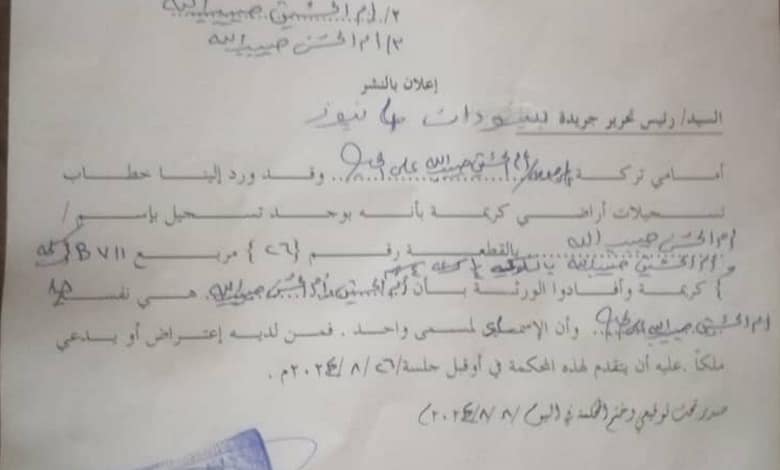 ٢/ أم الحسن حبيب الله
٣/ أم الحسن حبيب الله
إعلان بالنشر
السيد/ رئيس تحرير جريدة سودان 4 نيوز
أمامي تركة المرحومة/ أم الحسن حبيب الله علي ..... وقد ورد إلينا خطاب
تسجيلات أراضي كريمة بأنه يوجد تسجيل بإسم/
أم الحسن حبيب الله ..... بالقطعة رقم {٢٦} مربع B ٧١١ {
و أم الحسن حبيب الله
} كريمة وأفادوا الورثة بأن أم الحسن و أم الحسن حبيب الله هي نفسها
أم الحسن حبيب الله علي ..... وأن الإسمان لمسمى واحد . فمن لديه إعتراض أو يدعي
ملكاً .عليه أن يتقدم لهذه المحكمة في أو قبل جلسة/٢٦ /٨ /٢٠٢٤م .
صدر تحت توقيعي وختم المحكمة في اليوم /٨/٨ /٢٠٢٤م